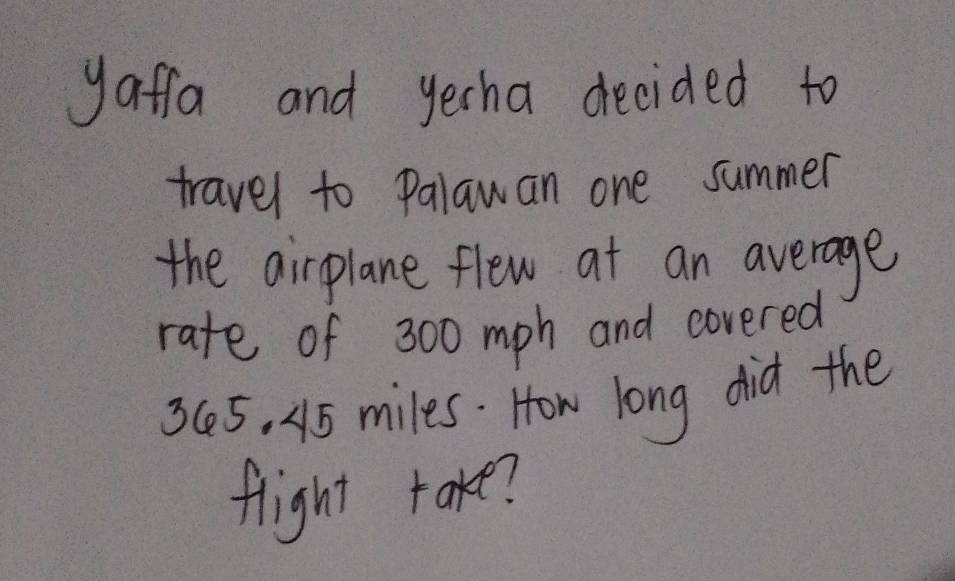 Yaffa and Yecha decided to
travel to Palawan one summer
the airplane flew at an average
rate of 300 mph and covered
365.45 miles. How long did the
flight take?